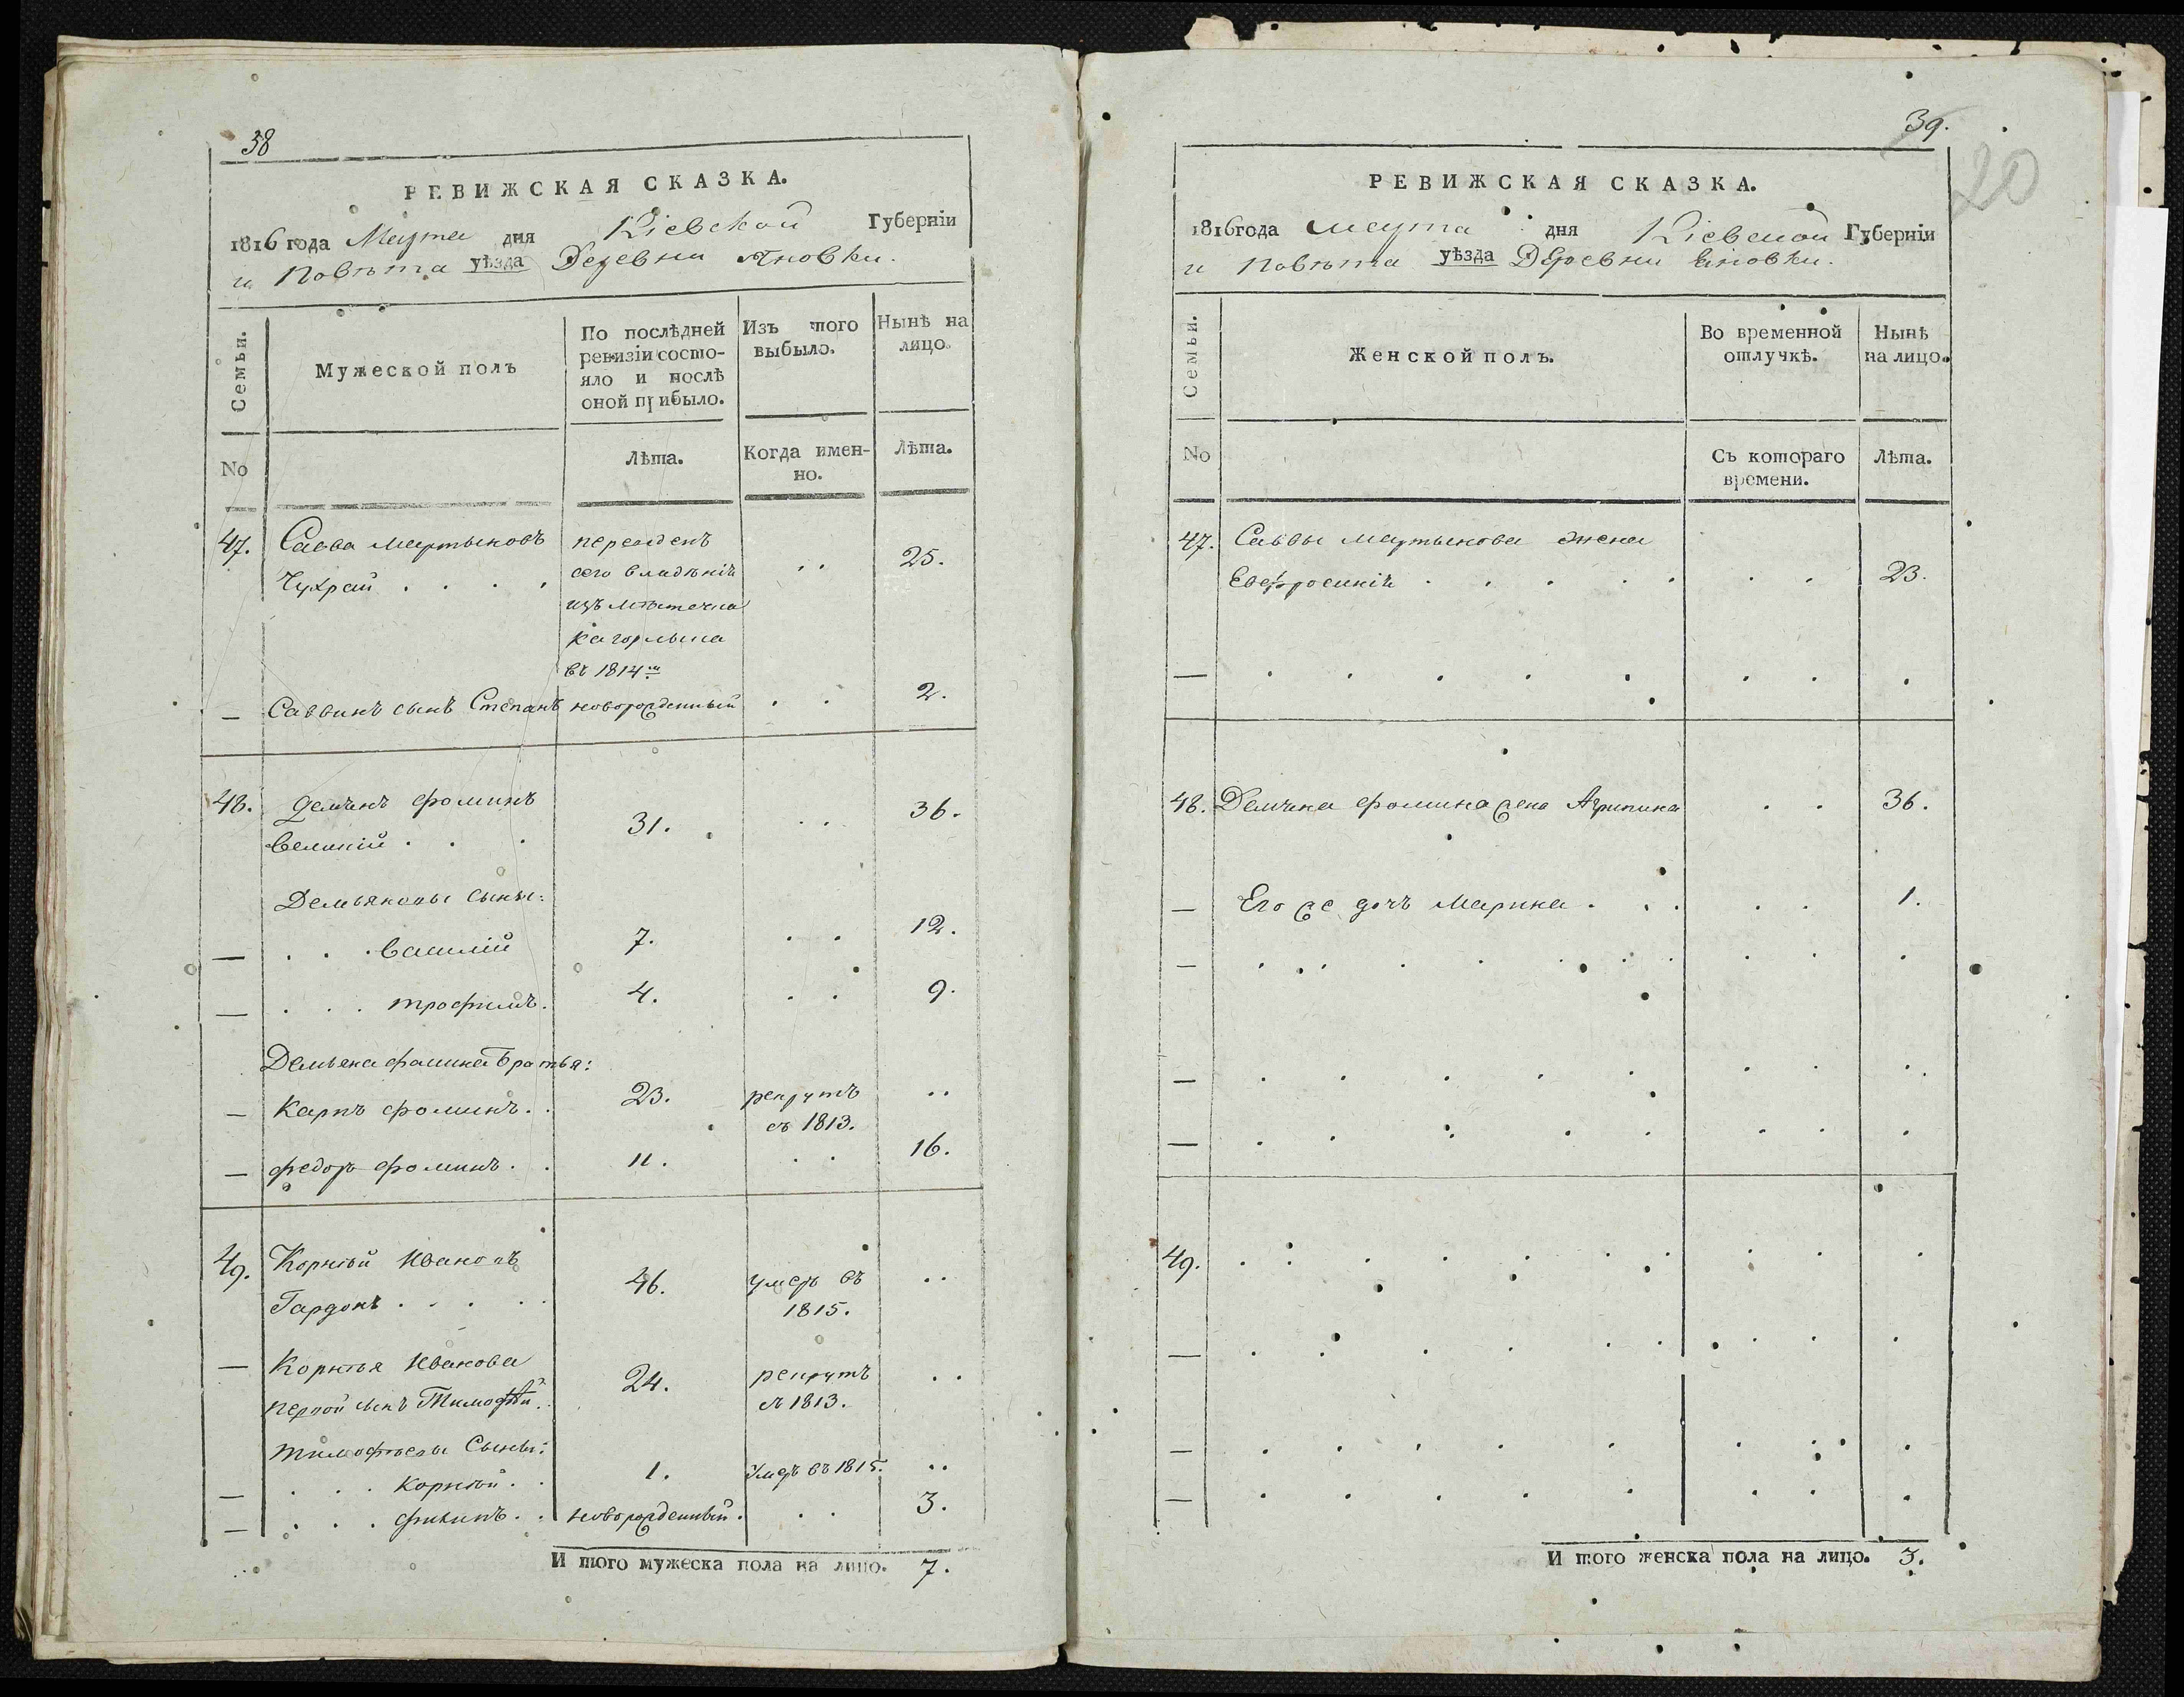 38
РЕВИЖСКАЯ СКАЗКА.
1816 года Марта дня Кіевской Губерніи
и Повѣта уѣзда Деревни Яновки.
Семьи.
Мужеской полъ
По послѣдней ревизіи состояло и послѣ оной прибыло.
Изъ того выбыло.
Нынѣ на лицо.
No
Лѣта.
Когда именно.
Лѣта.
47. Савва Мартыновъ переведенъ
Чухрай . . . . сего владѣнія . . 25.
изъ мѣстечка
Кагорлыка
въ 1814м
— Саввинъ сынъ Степанъ новорожденный . . 2.
48. Демьянъ Фоминъ
Великій . . . 31. . . 36.
Демьяновы сыны:
— . . . Василій 7. . . 12.
— . . . Трофимъ. 4. . . 9.
Демьяна Фомина Братья:
— Карпъ Фоминъ. . 23. рекрутъ . .
съ 1813.
— Федоръ Фоминъ. . 11. . . 16.
49. Корнѣй Ивановъ
Гардонъ . . . . . 46. умеръ въ . .
1815.
— Корнѣя Иванова
первой сынъ Тимофѣй. 24. рекрутъ . .
съ 1813.
Тимофѣевы Сыны:
— . . . Корнѣй. . 1. Умеръ въ 1815. . .
— . . . Филипъ. . новорожденный. . . 3.
И того мужеска пола на лицо. 7.
39.
20
РЕВИЖСКАЯ СКАЗКА.
1816года Марта дня Кіевской Губерніи
и Повѣта уѣзда Деревни Яновки.
Семьи.
Женской полъ.
Во временной отлучкѣ.
Нынѣ на лицо.
No
Съ котораго времени.
Лѣта.
47. Саввы Мартынова жена
Евфросинія . . . . . . . 23.
48. Демьяна Фомина жена Агрипина . . 36.
— Его же дочь Марина . . . . . 1.
49.
И того женска пола на лицо. 3.